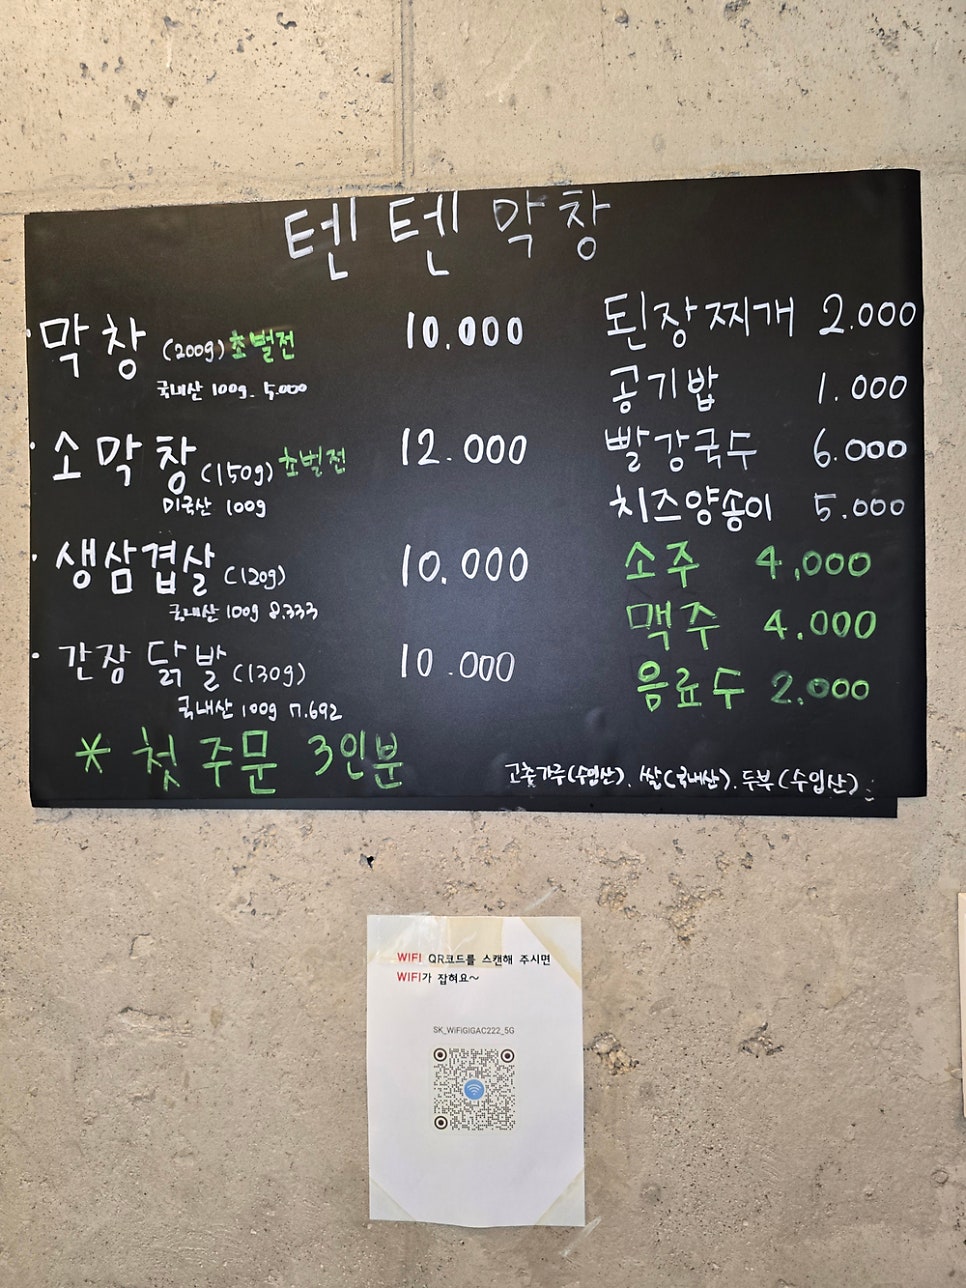 텐텐막창
· 막창 (200g) 초벌전 10.000
국내산 100g. 5.000
· 소막창 (150g) 초벌전 12.000
미국산 100g
· 생삼겹살 (120g) 10.000
국내산 100g 8.333
· 간장 닭발 (130g) 10.000
국내산 100g 7.692
* 첫 주문 3인분
된장찌개 2.000
공기밥 1.000
빨강국수 6.000
치즈양송이 5.000
소주 4,000
맥주 4.000
음료수 2.000
고춧가루(수입산). 쌀(국내산). 두부(수입산)
WIFI QR코드를 스캔해 주시면
WIFI가 잡혀요~
SK_WiFiGIGAC222_5G